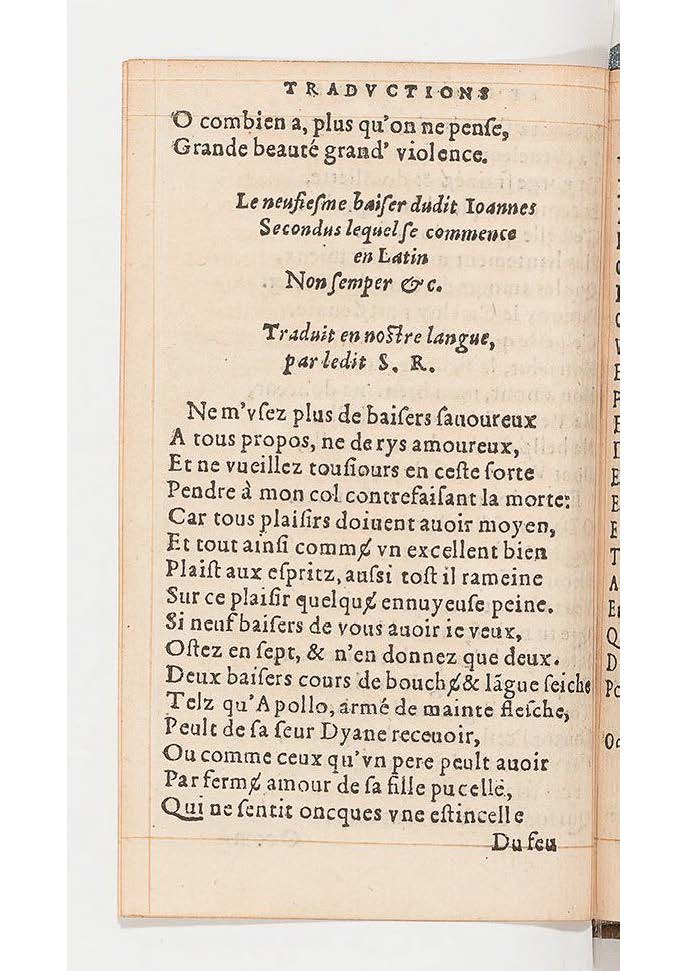 TRADVCTIONS
O combien a, plus qu'on ne penſe,
Grande beauté grand' violence.
Le neufieſme baiſer dudit Ioannes
Secondus lequel ſe commence
en Latin
Non ſemper &c.
Traduit en noſtre langue,
par ledit S. R.
Ne m'vſez plus de baiſers ſauoureux
A tous propos, ne de rys amoureux,
Et ne vueillez touſiours en ceſte ſorte
Pendre à mon col contrefaiſant la morte:
Car tous plaiſirs doiuent auoir moyen,
Et tout ainſi commɇ vn excellent bien
Plaiſt aux eſpritz, auſsi toſt il rameine
Sur ce plaiſir quelquɇ ennuyeuſe peine.
Si neuf baiſers de vous auoir ie veux,
Oſtez en ſept, & n'en donnez que deux.
Deux baiſers cours de bouchɇ & lãgue ſeiche
Telz qu'Apollo, armé de mainte fleſche,
Peult de ſa ſeur Dyane receuoir,
Ou comme ceux qu'vn pere peult auoir
Par fermɇ amour de ſa fille pucelle,
Qui ne ſentit oncques vne eſtincelle
Du feu